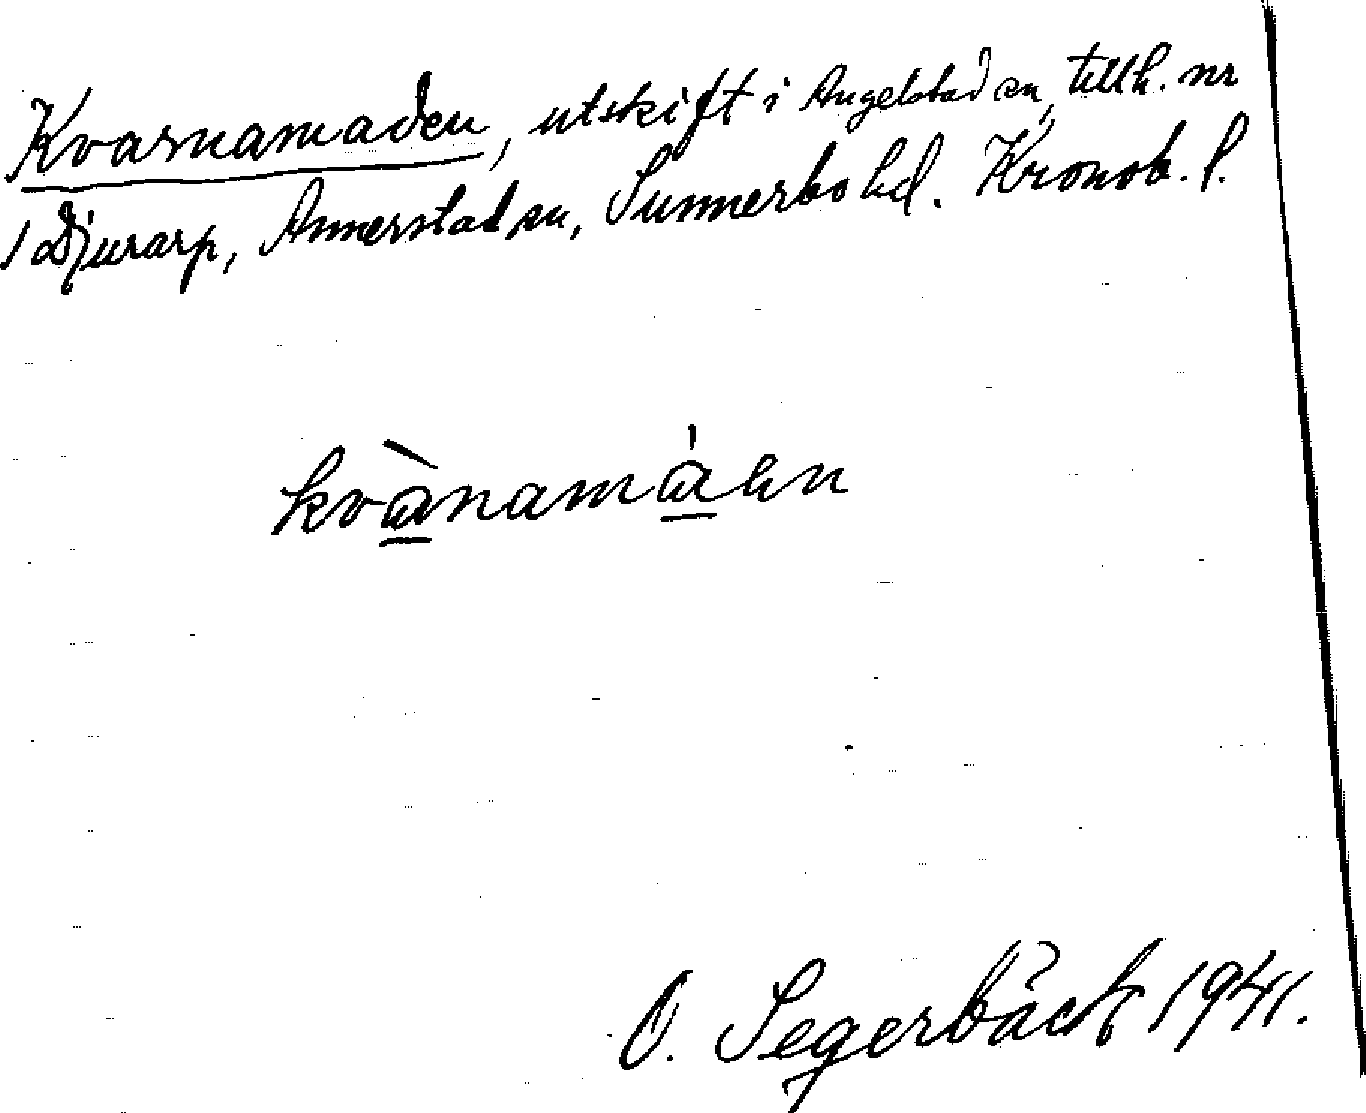 Kvarnamaden, utskift i Angelstad sn, tillh. nr
1 Djurarp, Annerstad sn, Sunnerbo hd. Kronob. l.
kvànamáen
O. Segerbäck 1941.